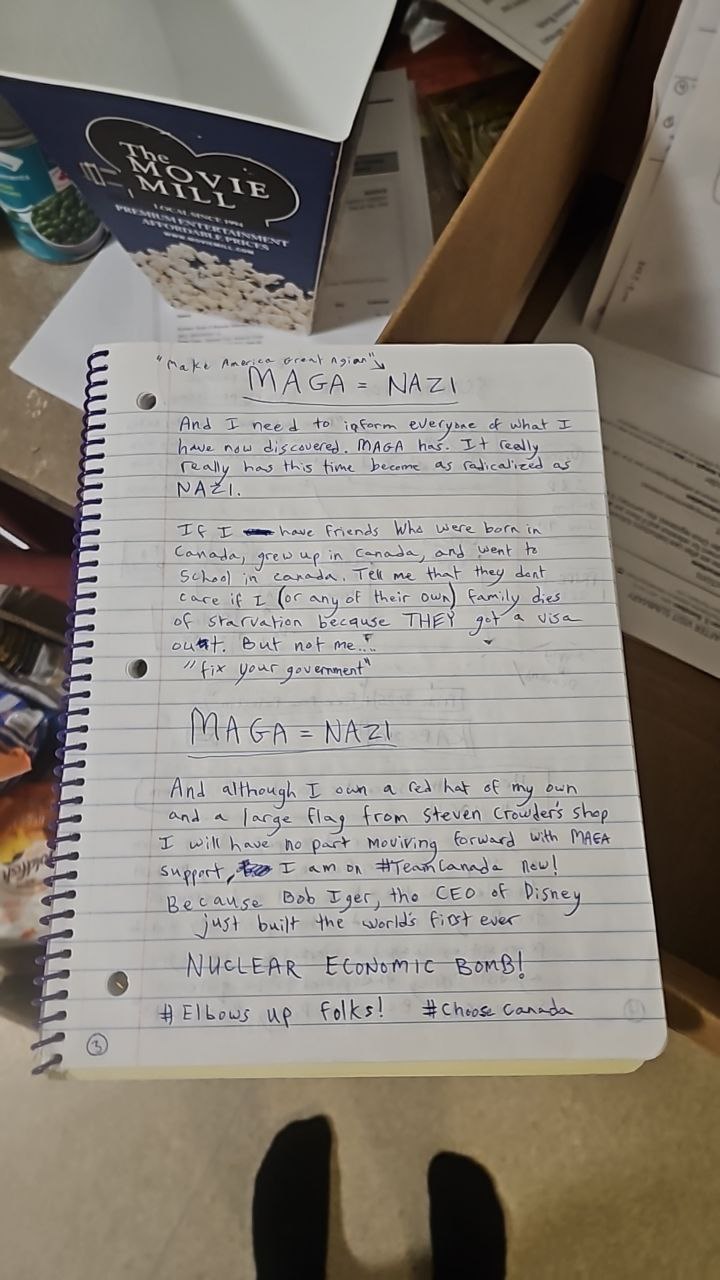 The
MOVIE
MILL
LOCAL SINCE 1994
PREMIUM ENTERTAINMENT
AFFORDABLE PRICES
WWW.MOVIEMILL.COM
"Make America Great Agian"
MAGA = NAZI
And I need to inform everyone of what I
have now discovered. MAGA has. It really
really has this time become as radicalized as
NAZI.
If I have friends Who were born in
Canada, grew up in Canada, and went to
School in canada. Tell me that they dont
care if I (or any of their own) family dies
of starvation because THEY got a visa
out. But not me...
"fix your government"
MAGA = NAZI
And although I own a red hat of my own
and a large flag from Steven Crowder's shop
I will have no part moviving forward with MAGA
support, I am on #TeamCanada now!
Because Bob Iger, the CEO of Disney
just built the world's first ever
NUCLEAR ECONOMIC BOMB!
#Elbows up folks! #Choose Canada
3